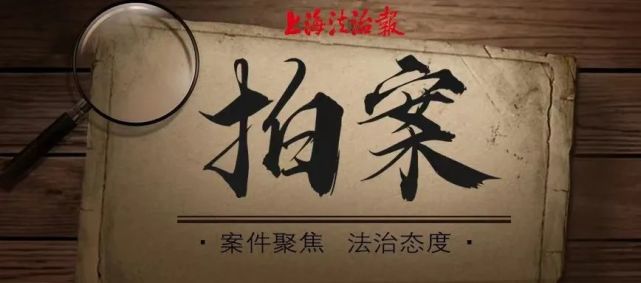 上海法治報
拍案
·案件聚焦 法治态度·